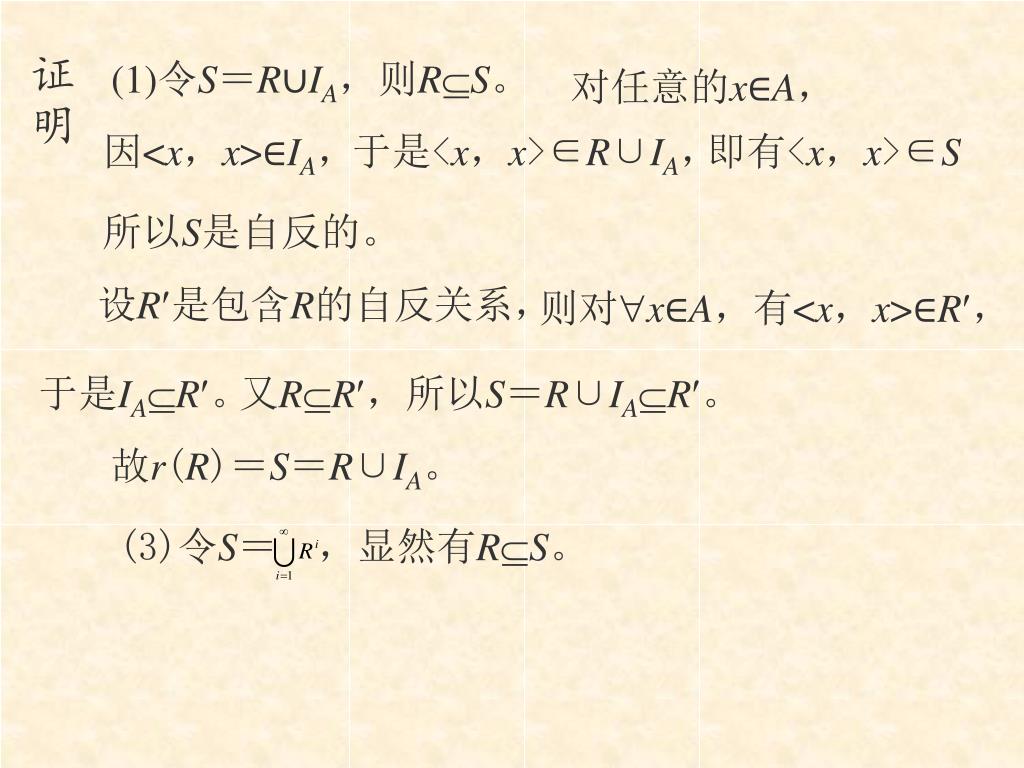 证明
(1)令S＝R∪I_A，则R⊆S。 对任意的x∈A，
因<x，x>∈I_A，于是<x，x>∈R∪I_A，即有<x，x>∈S
所以S是自反的。
设R′是包含R的自反关系，则对∀x∈A，有<x，x>∈R′，
于是I_A⊆R′。又R⊆R′，所以S＝R∪I_A⊆R′。
故r(R)＝S＝R∪I_A。
(3)令S＝⋃_{i=1}^{∞} R^i，显然有R⊆S。